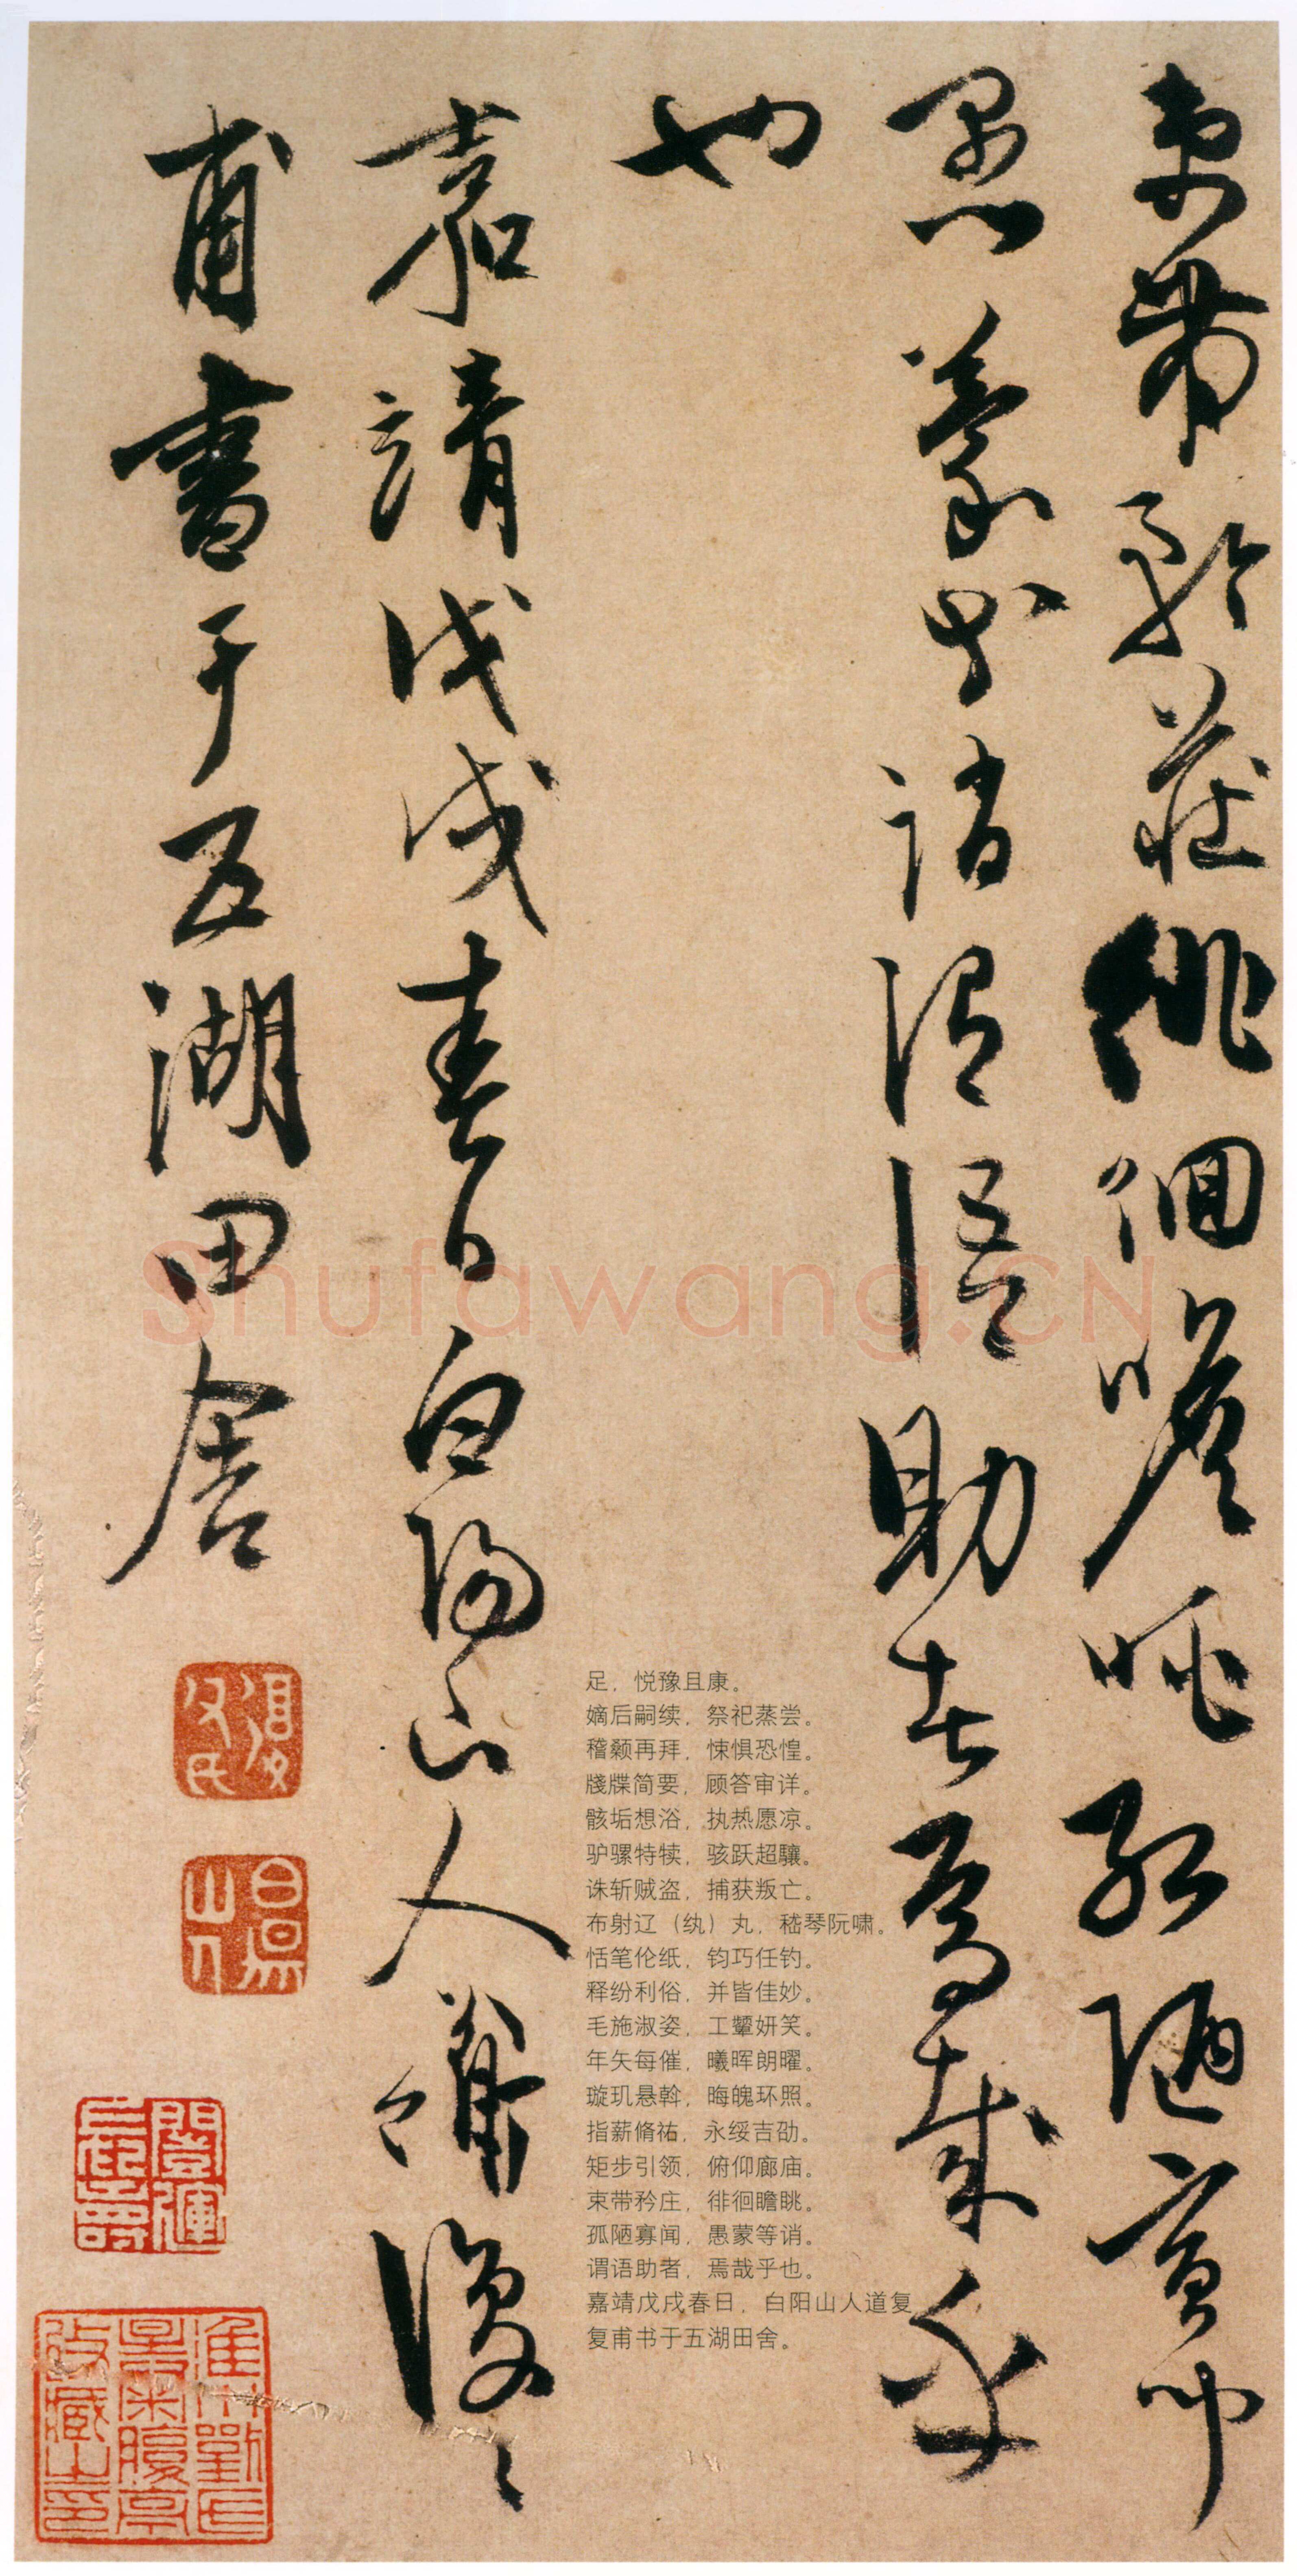 束帶矜莊徘徊瞻眺孤陋寡聞
愚蒙等誚謂語助者焉哉乎
也
嘉靖戊戌春日白陽山人道復々
甫書于五湖田舍
復父氏
白陽山人
足，悦豫且康。
嫡后嗣续，祭祀蒸尝。
稽颡再拜，悚惧恐惶。
牋牒简要，顾答审详。
骸垢想浴，执热愿凉。
驴骡特犊，骇跃超骧。
诛斩贼盗，捕获叛亡。
布射辽（纨）丸，嵇琴阮啸。
恬笔伦纸，钧巧任钓。
释纷利俗，并皆佳妙。
毛施淑姿，工颦妍笑。
年矢每催，曦晖朗曜。
璇玑悬斡，晦魄环照。
指薪脩祐，永绥吉劭。
矩步引领，俯仰廊庙。
束带矜庄，徘徊瞻眺。
孤陋寡闻，愚蒙等诮。
谓语助者，焉哉乎也。
嘉靖戊戌春日，白阳山人道复
复甫书于五湖田舍。
Shufawang.CN